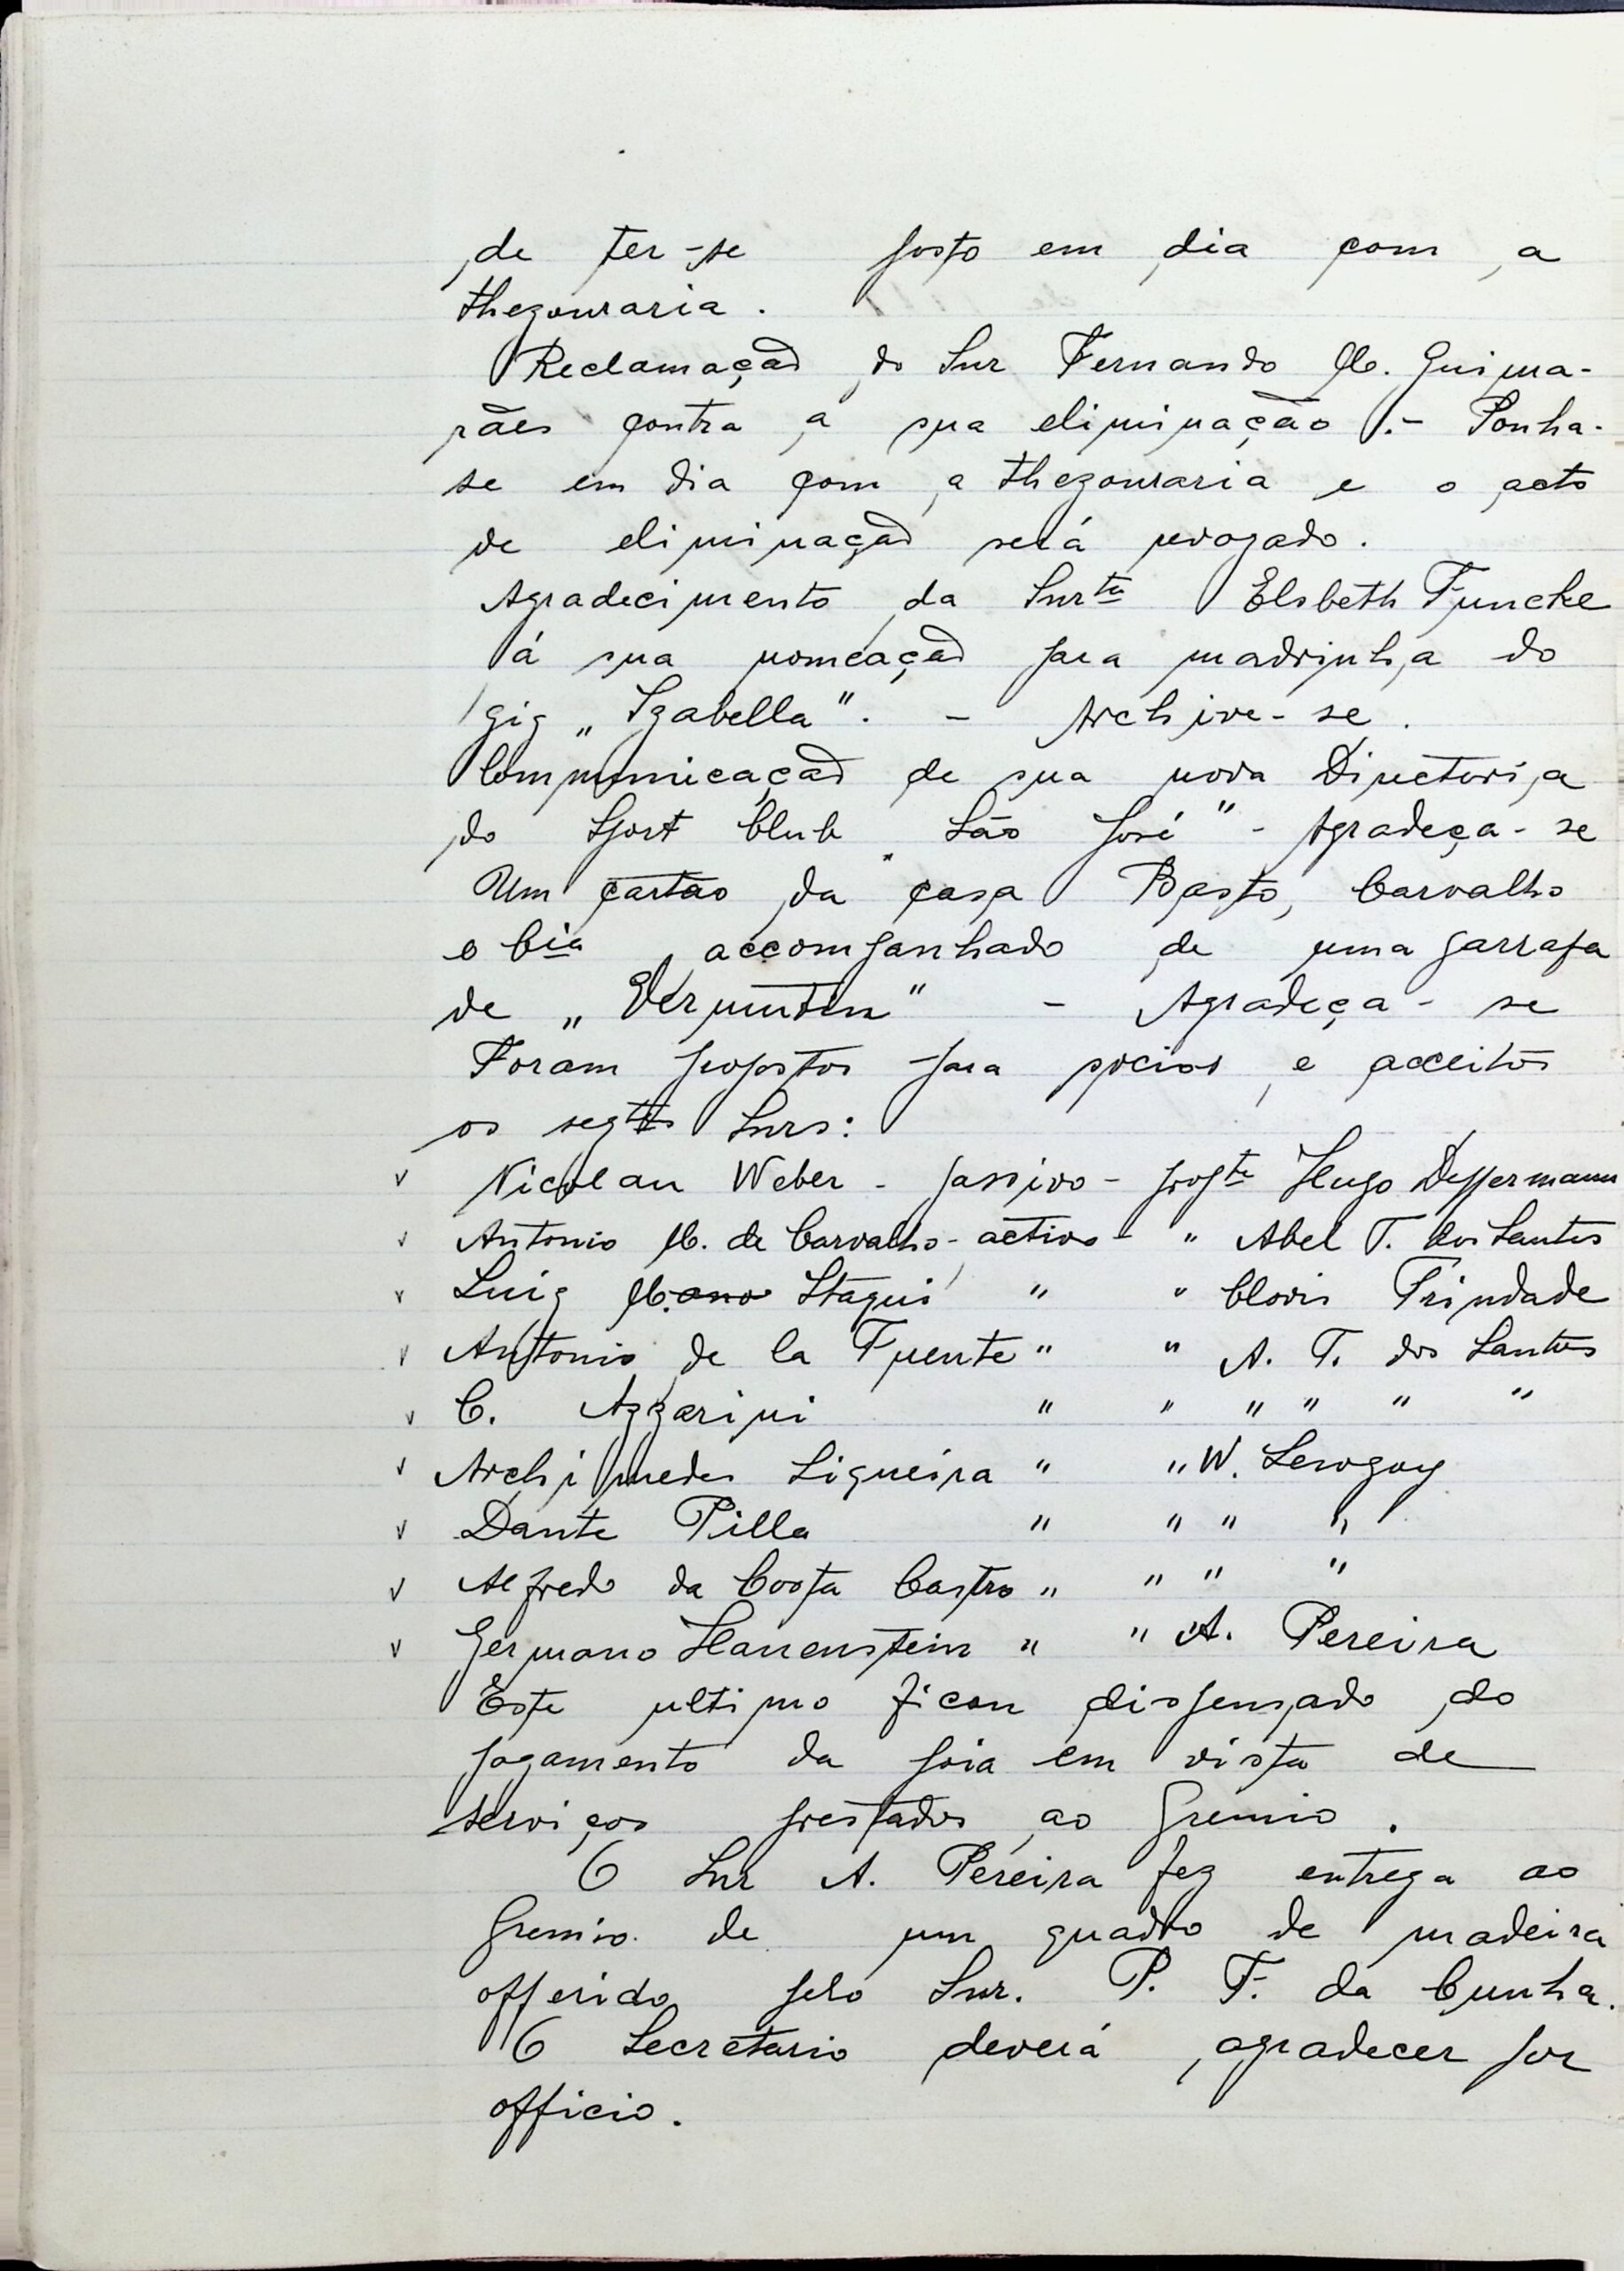 de ter-se posto em dia com a
thezouraria.
Reclamação do Snr Fernando M. Guima-
rães contra a sua eliminação. - Ponha-
se em dia com a thezouraria e o acto
de eliminação será revogado.
Agradecimento da Snrta Elsbeth Funcke
á sua nomeação para madrinha do
gig „Izabella". - Archive-se.
Communicação de sua nova Directoria
do Sport Club „São José" - Agradeça-se
Um cartão da casa Basto, Carvalho
e Cia accompanhado de uma garrafa
de „Vermutin" - Agradeça-se
Foram propostos para socios e acceitos
os segtes Snrs:
v Nicolau Weber - passivo - propte Hugo Deppermann
v Antonio M. de Carvalho - activo - " Abel T. dos Santos
v Luiz M. Stagui " " Clovis Trindade
v Antonio de la Fuente " " A. T. dos Santos
v C. Azzarini " " " " " "
v Archimedes Siqueira " " W.
v Dante Pilla " " " "
v Alfredo da Costa Castro " " " "
v Germano Hanenstein " " A. Pereira
Este ultimo ficou dispensado do
pagamento da joia em vista de
serviços prestados ao Gremio.
O Snr A. Pereira fez entrega ao
Gremio de um quadro de madeira
offerido pelo Snr. P. F. da Cunha.
O Secretario deverá agradecer por
officio.